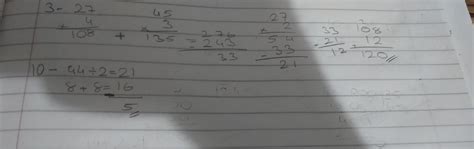 3- 27
× 4
108
+
45
× 3
135
= 276
243
33
27
× 2
54
- 33
21
33
- 21
12
108
12
120
10- 44÷2=21
8+8=16
5